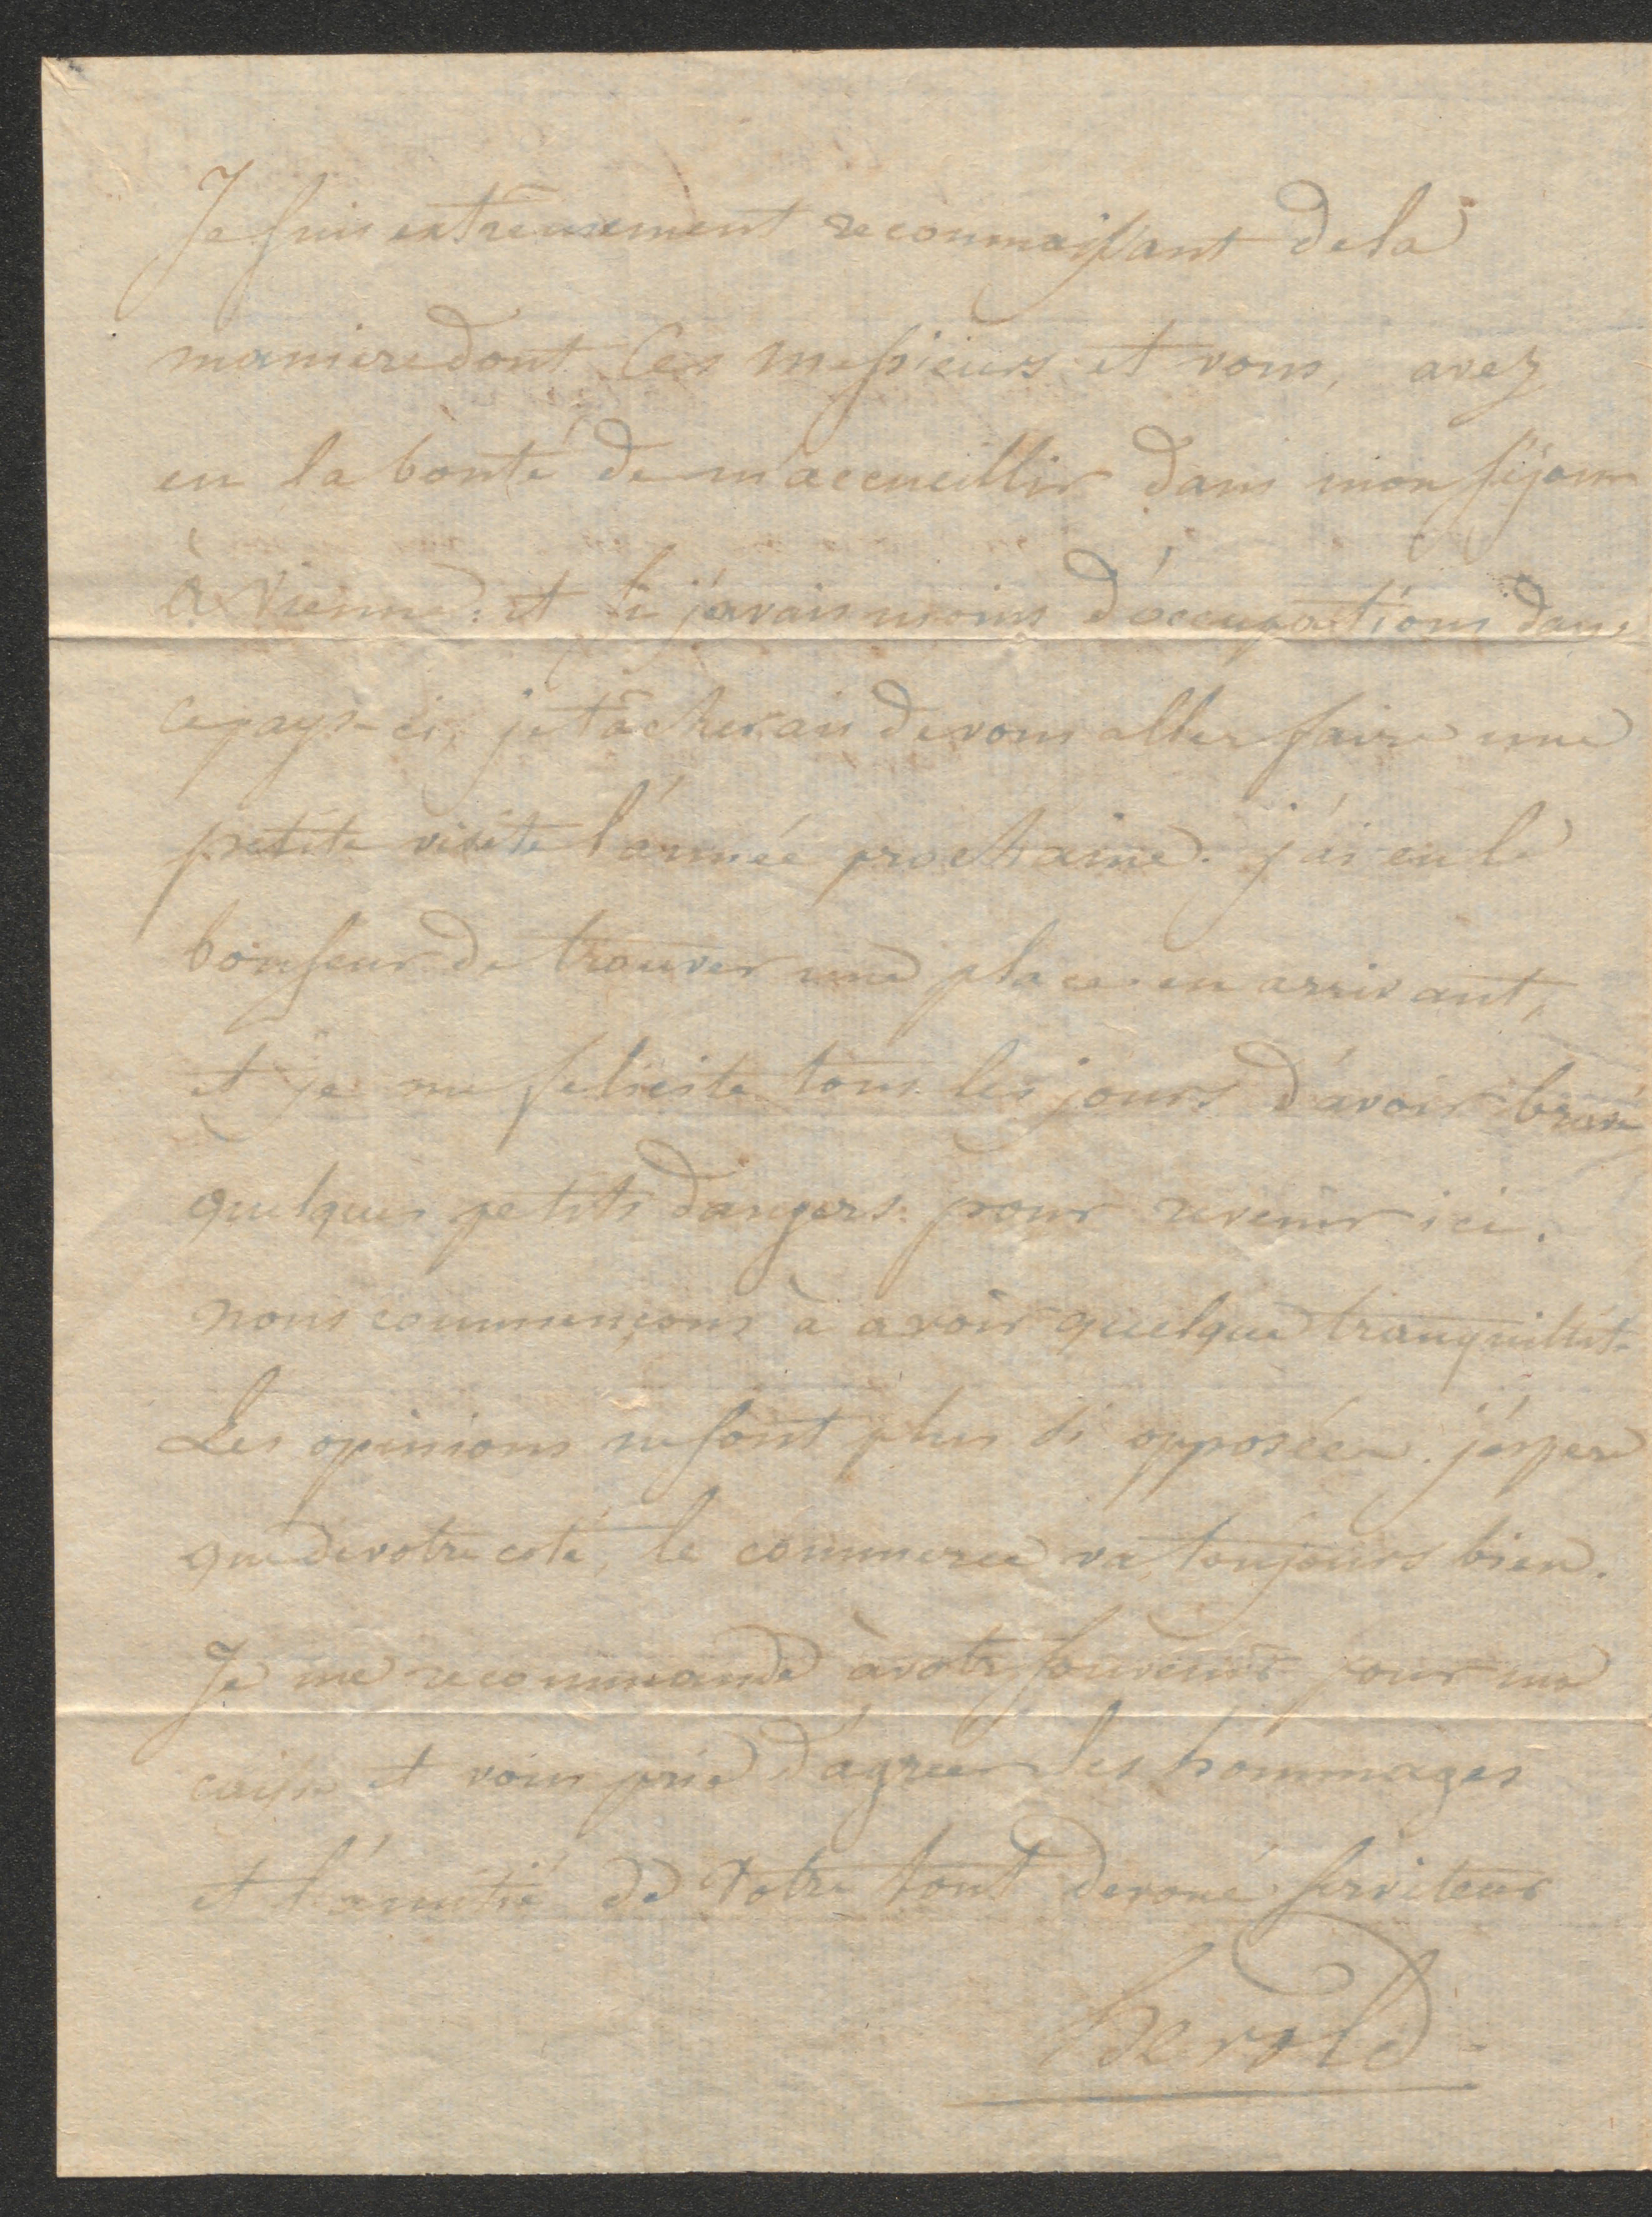 Je suis extrêmement reconnaissant de la
maniere dont Ces messieurs et vous, avez
eu la bonté de m'accueillir dans mon séjour
à Vienne: et si j'avais moins d'occupations dans
ce pays-ci, je tâcherais de vous aller faire une
petite visite l'année prochaine. j'ai eu le
bonheur de trouver une place en arrivant,
et je me felicite tous les jours d'avoir bravé
quelques petits dangers pour revenir ici.
nous commençons à avoir quelque tranquillité.
Les opinions ne sont plus si opposées. j'éspere
que de votre coté, le commerce va toujours bien.
Je me recommande à votre souvenir pour ma
caisse et vous prie d'agréer les hommages
et l'amitié de Votre tout devoué serviteur
herold